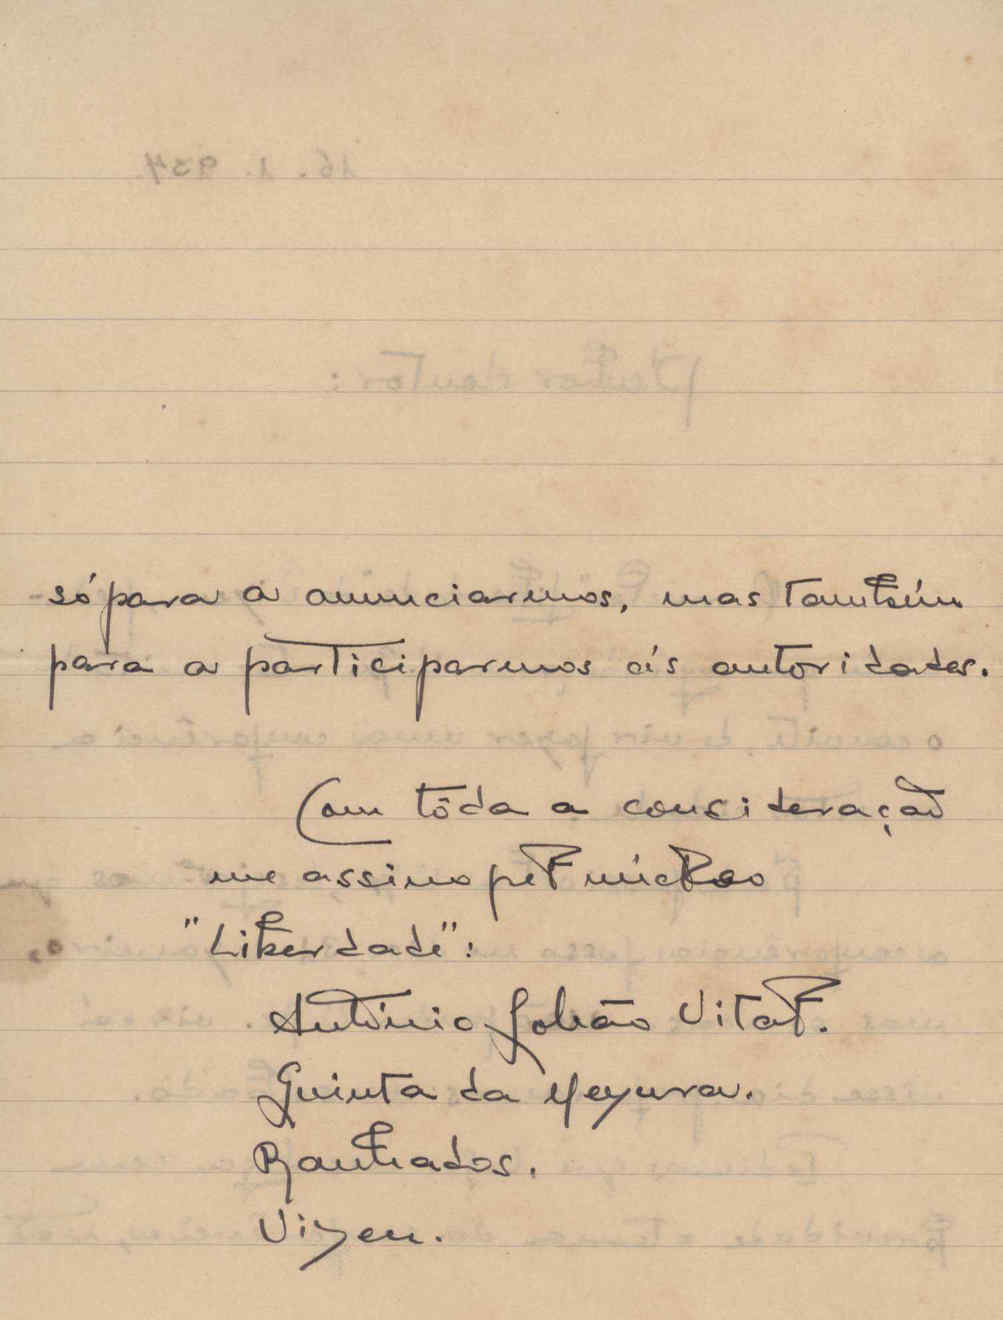 só para a anunciarmos, mas também
para a participarmos ás autoridades.
Com tôda a consideração
me assino pel' núcleo
"Liberdade":
António João Vital.
Quinta da
Ranhados.
Vizeu.